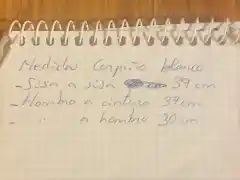 Medidas Corpiño blanco
- Sisa a sisa 39 cm
- Hombro a cintura 37 cm
- " " a hombro 30 cm